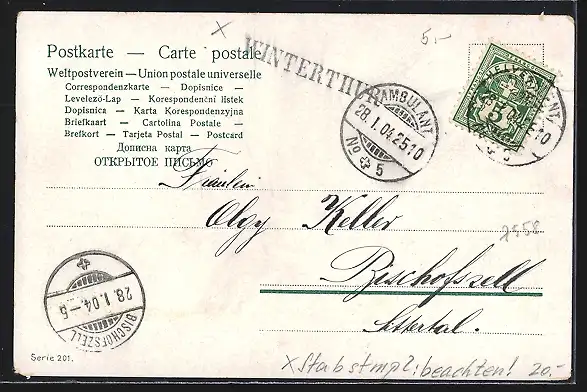 x
5.-
WINTERTHUR
Postkarte — Carte postale
Weltpostverein — Union postale universelle
Correspondenzkarte — Dopisnice —
Levelező-Lap — Korespondenční listek
Dopisnica — Karta Korespondenzyjna
Briefkaart — Cartolina Postale —
Brefkort — Tarjeta Postal — Postcard
Дописна карта
ОТКРЫТОЕ ПИСЬМО
AMBULANT
28.I.04.2510
No 5
HELVETIA
5
AMBULANT
10
No 5
Fräulein
Olgy Keller
2558
Bischofszell
Sittertal.
28.I.04.-5
BISCHOFSZELL
Serie 201.
x Stabstmpl: beachten! 20.-